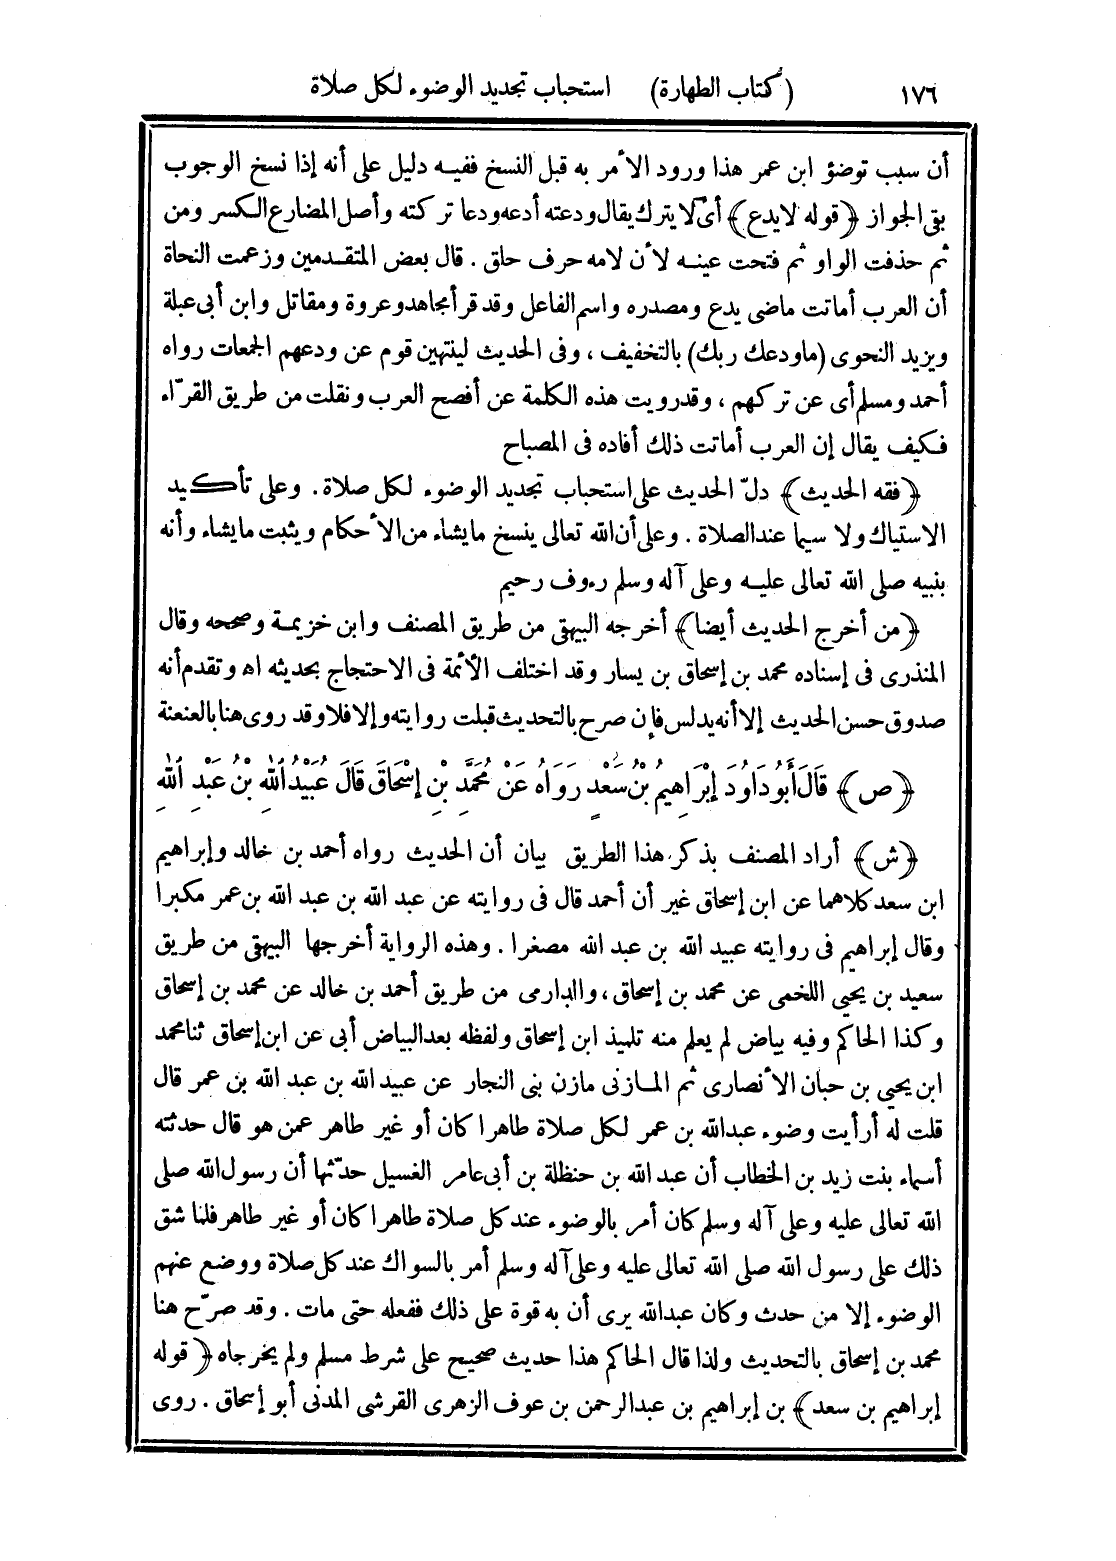 ١٧٦ (كتاب الطهارة) استحباب تجديد الوضوء لكل صلاة
أن سبب توضؤ ابن عمر هذا ورود الأمر به قبل النسخ ففيه دليل على أنه إذا نسخ الوجوب
بقى الجواز ﴿قوله لا يدع﴾ أى لا يترك يقال ودعته أدعه ودعا تركته وأصل المضارع الكسر ومن
ثم حذفت الواو ثم فتحت عينه لأن لامه حرف حلق . قال بعض المتقدمين وزعمت النحاة
أن العرب أماتت ماضى يدع ومصدره واسم الفاعل وقد قرأ مجاهد وعروة ومقاتل وابن أبى عبلة
ويزيد النحوى (ماودعك ربك) بالتخفيف ، وفى الحديث لينتهين قوم عن ودعهم الجمعات رواه
أحمد ومسلم أى عن تركهم ، وقد رويت هذه الكلمة عن أفصح العرب ونقلت من طريق القرّاء
فكيف يقال إن العرب أماتت ذلك أفاده فى المصباح
﴿فقه الحديث﴾ دلّ الحديث على استحباب تجديد الوضوء لكل صلاة . وعلى تأكيد
الاستياك ولا سيما عند الصلاة . وعلى أن الله تعالى ينسخ مايشاء من الأحكام ويثبت مايشاء وأنه
بنبيه صلى الله تعالى عليه وعلى آله وسلم رءوف رحيم
﴿من أخرج الحديث أيضا﴾ أخرجه البيهقى من طريق المصنف وابن خزيمة وصححه وقال
المنذرى فى إسناده محمد بن إسحاق بن يسار وقد اختلف الأئمة فى الاحتجاج بحديثه اه وتقدم أنه
صدوق حسن الحديث إلا أنه يدلس فإن صرح بالتحديث قبلت روايته وإلا فلا وقد روى هنا بالعنعنة
﴿ص﴾ قَالَ أَبُو دَاوُدَ إِبْرَاهِيمُ بْنُ سَعْدٍ رَوَاهُ عَنْ مُحَمَّدِ بْنِ إِسْحَاقَ قَالَ عُبَيْدُ اللهِ بْنُ عَبْدِ اللهِ
﴿ش﴾ أراد المصنف بذكر هذا الطريق بيان أن الحديث رواه أحمد بن خالد وإبراهيم
ابن سعد كلاهما عن ابن إسحاق غير أن أحمد قال فى روايته عن عبد الله بن عبد الله بن عمر مكبرا
وقال إبراهيم فى روايته عبيد الله بن عبد الله مصغرا . وهذه الرواية أخرجها البيهقى من طريق
سعيد بن يحيى اللخمى عن محمد بن إسحاق ، والدارمى من طريق أحمد بن خالد عن محمد بن إسحاق
وكذا الحاكم وفيه بياض لم يعلم منه تلميذ ابن إسحاق ولفظه بعد البياض أبى عن ابن إسحاق ثنا محمد
ابن يحيى بن حبان الأنصارى ثم المازنى مازن بنى النجار عن عبيد الله بن عبد الله بن عمر قال
قلت له أرأيت وضوء عبد الله بن عمر لكل صلاة طاهرا كان أو غير طاهر عمن هو قال حدثته
أسماء بنت زيد بن الخطاب أن عبد الله بن حنظلة بن أبى عامر الغسيل حدّثها أن رسول الله صلى
الله تعالى عليه وعلى آله وسلم كان أمر بالوضوء عند كل صلاة طاهرا كان أو غير طاهر فلما شق
ذلك على رسول الله صلى الله تعالى عليه وعلى آله وسلم أمر بالسواك عند كل صلاة ووضع عنهم
الوضوء إلا من حدث وكان عبدالله يرى أن به قوة على ذلك ففعله حتى مات . وقد صرّح هنا
محمد بن إسحاق بالتحديث ولذا قال الحاكم هذا حديث صحيح على شرط مسلم ولم يخرجاه ﴿قوله
إبراهيم بن سعد﴾ بن إبراهيم بن عبدالرحمن بن عوف الزهرى القرشى المدنى أبو إسحاق . روى